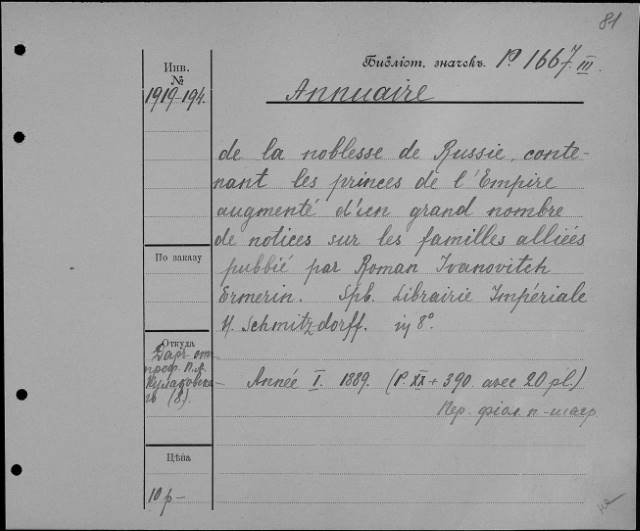 81
Библіот. значекъ. P. 1667. III.
Инв.
№
1919-194.
Annuaire
de la noblesse de Russie, conte-
nant les princes de l'Empire
augmenté d'un grand nombre
de notices sur les familles alliées
pubbié par Roman Ivanovitch
Ermerin. Spb. Librairie Impériale
H. Schmitzdorff. in 8°.
По заказу
Откуда
Даръ от
проф. П. А.
(8).
Année I. 1889. (P. XX + 390 avec 20 pl.)
Пер. фіол. п.-шагр.
Цѣна
10 р-